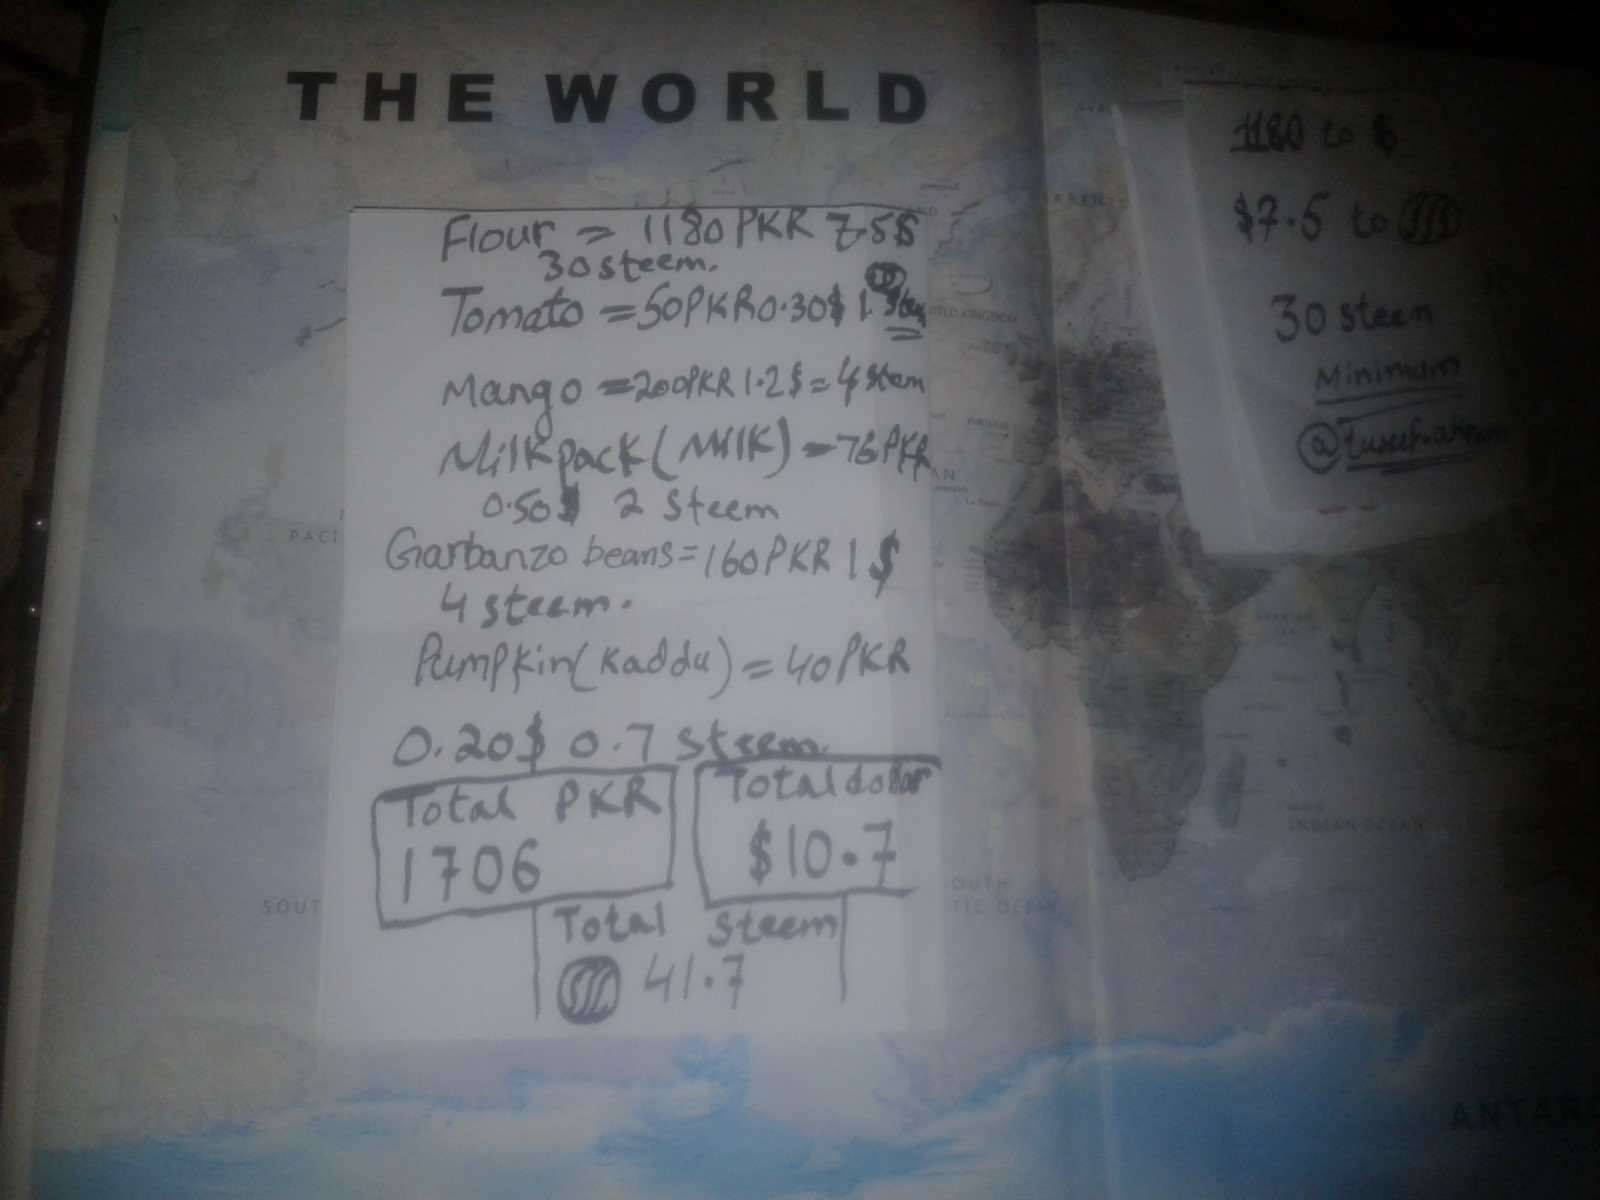 THE WORLD
Flour = 1180 PKR 7.5$
30 steem.
Tomato = 50PKR 0.30$ 1 Steem
Mango = 200PKR 1.2$ = 4 steem
Milkpack (Milk) = 76 PKR
0.50$ 2 steem
Garbanzo beans = 160 PKR 1 $
4 steem.
Pumpkin (Kaddu) = 40 PKR
0.20$ 0.7 steem.
Total PKR
1706
Total dollar
$10.7
Total Steem
41.7
1180 to $
$7.5 to
30 steem
Minimum
KINGDOM
PACI
SOUT
OUTH
TIC OCEAN
INDIAN OCEAN
ANTAR